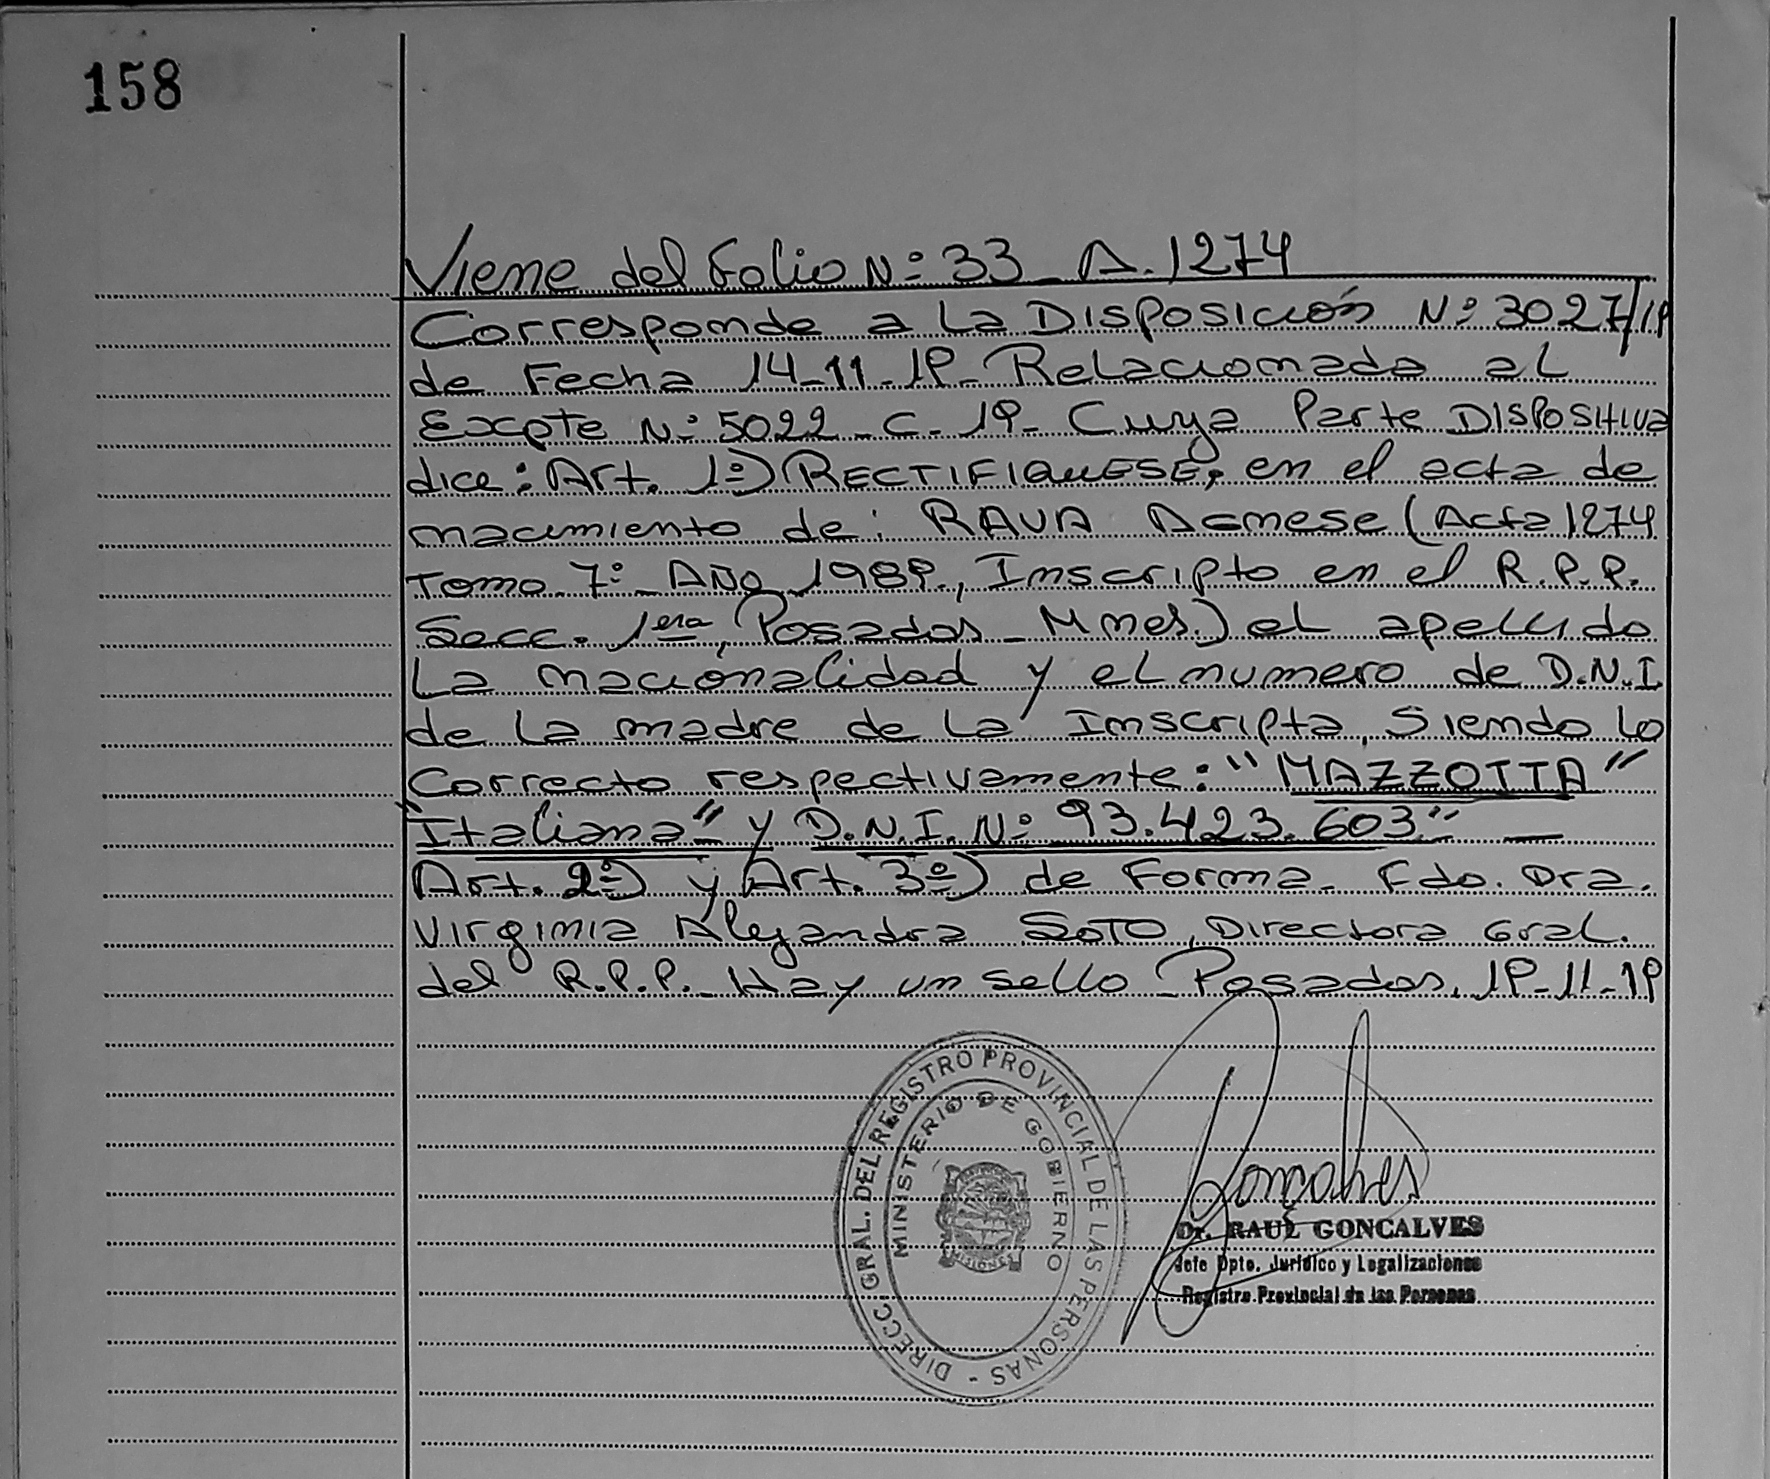 158
Viene del folio Nº 33 - A. 1274
Corresponde a la Disposición Nº 3027/19
de Fecha 14-11-19- Relacionada al
Expte Nº 5022 - C. 19- Cuya Parte Dispositiva
dice: Art. 1º) RECTIFIQUESE, en el acta de
nacimiento de: RAVA Agnese (Acta 1274
Tomo 7º - Año 1989, Inscripto en el R.P.P.
Secc. 1era, Posadas - Mnes.) el apellido
La nacionalidad y el numero de D.N.I
de la madre de la Inscripta, Siendo lo
Correcto respectivamente: "MAZZOTTA"
"Italiana" y D.N.I. Nº 93.423.603" —
Art. 2º) y Art. 3º) de Forma. Fdo. Dra.
Virginia Alejandra SOTO, Directora Gral.
del R.P.P. - Hay un sello - Posadas, 19-11-19
DIRECC. GRAL. DEL REGISTRO PROVINCIAL DE LAS PERSONAS -
MINISTERIO DE GOBIERNO
MISIONES
Goncalves
Dr. RAUL GONCALVES
Jefe Dpto. Jurídico y Legalizaciones
Registro Provincial de las Personas